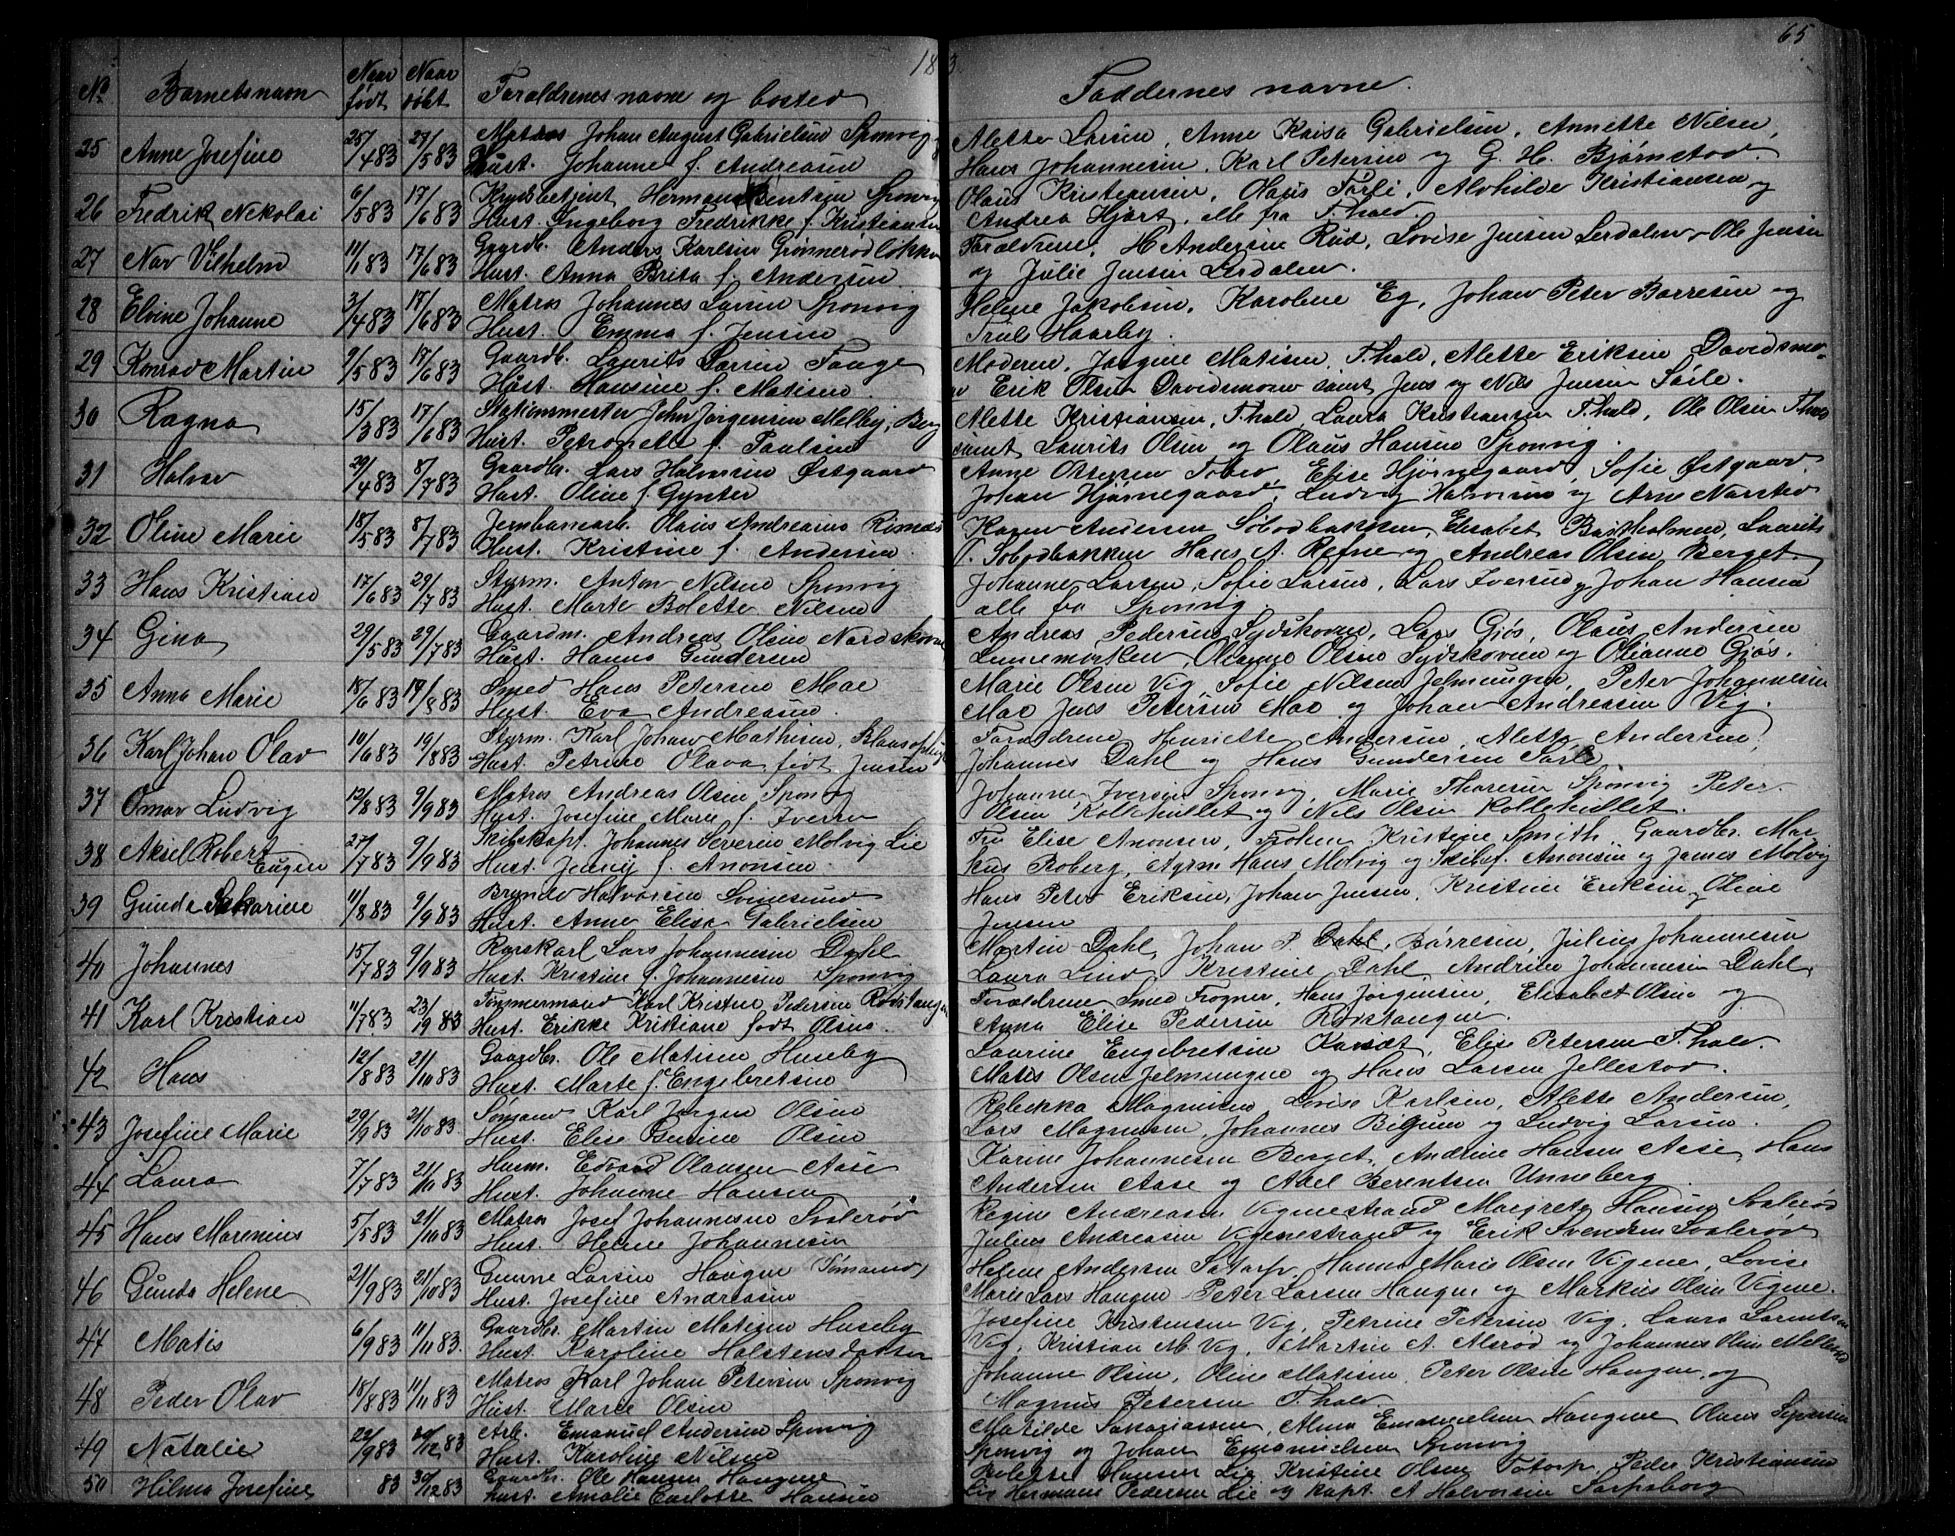 1883
65
No Barnets navn Naar født Naar døbt Forældrenes navne og bosted Faddernes navne.
25 Anne Josefine 25/4 83 27/5 83 Matros Johan August Gabrielsen Sponvig
Hust. Johanne f. Andreasen
Alette Larsen, Anne Kaisa Gabrielsen, Annette Nilsen,
Hans Johannesen, Karl Petersen og G. H. Bjørnstad.
26 Fredrik Nikolai 6/5 83 17/6 83 Herman Sponvig
Hust. Ingeborg Fredrikke f. Kristiansen
Olaus Kristiansen, Olaus Sørli, Alvhilde Kristiansen og
Andrea Hjort, alle fra F.hald
27 Nav Vilhelm 11/1 83 17/6 83 Gaardb. Anders Karlsen Grønnerødløkken
Hust. Anna Brita f. Andersen
Forældrene, H Andersen Rød, Lovise Jensen Lerdalen, Ole Jensen
og Julie Jensen Lerdalen.
28 Elvine Johanne 3/4 83 17/6 83 Matros Johannes Larsen Sponvig
Hust. Emma f. Jensen
Helene Jakobsen, Karoline Eg, Johan Peter Børresen og
Truls Haarby.
29 Konrad Martin 9/5 83 17/6 83 Gaardb. Laurits Larsen
Hust. Hansine f. Matisen
Moderen, Jørgine Matisen F.hald, Alette Eriksen Davidsmo-
Erik Olsen Davidsmoen samt Jens og Nils Jensen
30 Ragna 15/3 83 17/6 83 Stationsmester John Jørgensen Melby, Berg
Hust. Petronelle f. Paulsen
Alette Kristiansen, F.hald, Laura Kristiansen F.hald, Ole Olsen F.hald
samt Laurits Olsen og Olaus Hansen Sponvig.
31 Halvar 29/4 83 8/7 83 Gaardbr. Lars Halvorsen Østgaard
Hust. Oline f. Gynter
Anne Elise Hjørnegaard, Sofie Østgaard,
Johan Hjørnegaard, Ludvig Halvorsen og Arne Narsted
32 Oline Marie 18/5 83 8/7 83 Jernbanearb. Olaus Andreasen
Hust. Kristine f. Andersen
Karen Andersen Sobodbakken, Elisabet Laurits
Sobodbakken Hans A. Refne og Andreas Olsen Berget
33 Hans Kristian 17/6 83 29/7 83 Styrm. Anton Nilsen Sponvig
Hust. Marte Bolette Nilsen
Johanne Larsen, Sofie Larsen, Lars Iversen og Johan Hansen
alle fra Sponvig
34 Gina 29/5 83 29/7 83 Gaardm. Andreas Olsen Nordskoven
Hust. Hanna Gundersen
Andreas Pedersen Sydskoven, Lars Gjøs, Olaus Andersen
Olianne Olsen Sydskoven og Olianne Gjøs.
35 Anna Marie 18/6 83 Smed Hans Petersen Moe
Hust. Eva Andreasen.
Marie Olsen Vig, Sofie Nilsen Jelmungen, Peter Johannesen
Moe Jens Petersen Moe og Johan Andreasen Vig.
36 Karl Johan Olav 10/6 83 19/8 83 Styrm. Karl Johan Mathisen,
Hust. Petrine Olava født Jensen
Forældrene Henriette Andersen, Alette Andersen,
Johannes Dahl og Hans Gundersen
37 Omar Ludvig 12/8 83 9/9 83 Matros Andreas Olsen Sponvig
Hust. Josefine Marie f. Iversen
Johanne Iversen Sponvig, Marie Thoresen Sponvig Peter
Olsen Kollehullet og Nils Olsen Kollehullet.
38 Aksel Robert Eugen 27/7 83 9/9 83 Skibskapt. Johannes Severin Molvig Lie
Hust. Jenny f. Anonsen.
Fru Elise Anonsen, Frøken Kristine Smith Gaardbr. Mar
kus Boberg, Hans Molvig og Skibsf. Anonsen og James Molvig
39 Gunda Sakarine 11/8 83 9/9 83 Brynde Halvorsen Svinesund
Hust. Anne Elise Gabrielsen
Hans Peter Eriksen, Johan Jensen, Kristine Eriksen, Oline
Jensen
40 Johannes 15/7 83 9/9 83 Lars Johannesen Dahl
Hust. Kristine f. Johannesen Sponvig
Martin Dahl, Johan P. Dahl, Børresen, Julius Johannesen
Laura Lund, Kristine Dahl, Andrine Johannesen Dahl
41 Karl Kristian 11/7 83 23/9 83 Tømmermand Karl Kristen Pedersen Rødstangen
Hust. Erikke Kristiane født Olsen.
Forældrene Smed Frogner, Hans Jørgensen, Elisabet Olsen og
Anna Elise Pedersen Rødstangen.
42 Hans 12/8 83 21/10 83 Gaardbr. Ole Matisen Huseby
Hust. Marte f. Engebretsen
Laurine Engebretsen Elise Petersen F.hald.
Matis Olsen Jelmungen og Hans Larsen Jellestad.
43 Josefine Marie 29/9 83 21/10 83 Sømand Karl Jørgen Olsen
Hust. Elise Olsen
Rebekka Magnusen Lovise Karlsen, Alette Andersen,
Lars Magnusen, Johannes og Ludvig Larsen.
44 Laura 7/7 83 21/10 83 Husm. Edvard Olausen Aase
Hust. Johanne Hansen
Karine Johannesen Berget, Andrine Hansen Aase, Hans
Andersen Aase og Abel Berentsen Unneberg
45 Hans Marenius 5/5 83 21/10 83 Matros Josef Johannesen Svalerød
Hust. Helene Johannesen
Regine Andreasen Vigenestrand Margrete Hansen Svalerød
Julius Andreasen Vigenestrand og Erik Svendsen Svalerød
46 Gunda Helene 21/9 83 21/10 83 Gunne Larsen Haugen (Sømand)
Hust. Josefine Andreasen
Helene Andersen Hanna Marie Olsen Vigene, Lovise
Marie Lars Haugen Peter Larsen Haugen og Markus Olsen Vigene.
47 Matis 6/9 83 11/11 83. Gaardbr. Martin Matisen Huseby
Hust. Karoline Halstensdatter
Josefine Kristensen Vig, Petrine Petersen Vig, Laura
Vig, Kristian M. Vig, Martin A. Alerød og Johannes Olsen
48 Peder Olav 18/8 83 11/11 83 Matros Karl Johan Petersen Sponvig
Hust. Marie Olsen
Johanne Olsen, Oline Matisen, Peter Olsen Haugen, og
Magnus Petersen F.hald.
49 Natalie 22/9 83 Arb. Emanuel Andersen Sponvig
Hust. Karoline Nilsen
Matilde Sakariassen, Alma Emanuelsen Haugene Olaus
Sponvig og Johan Emanuelsen Sponvig
50 Hilma Josefine 83 30/12 83 Gaardbr. Ole Hansen Haugene
Hust. Amalie Carlotte Hansen
Bolette Hansen Lie, Kristine Olsen Peder Kristiansen
Lie Herman Pedersen Lie og Kapt. A Halvorsen Sarpsborg